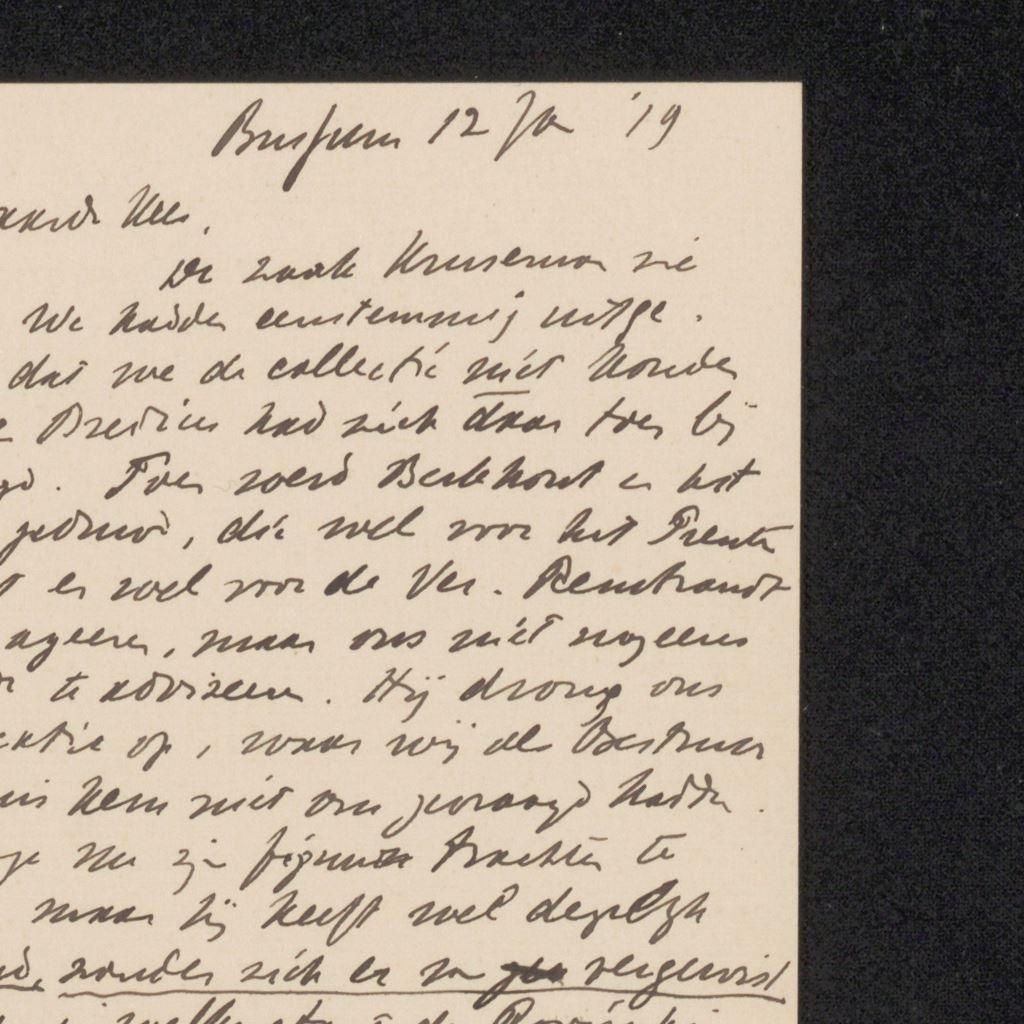 Bussum 12 Ja '19
Kees,
De zaak Kruseman zie
We hadden eenstemmig uitge-
dat we de collectie niet konden
Bredius had zich daar toen bij
Toen werd Berkhout er uit
, die wel voor het Prenten
er wel voor de Ver. Rembrandt
ageeren, maar ons niet nogeens
te adviseeren. Hij drong ons
op, waar wij als Bestuur
hem niet om gevraagd hadden.
nu zijn figuur te trachten te
maar hij heeft wel degelijk
zonder zich er van vergewist